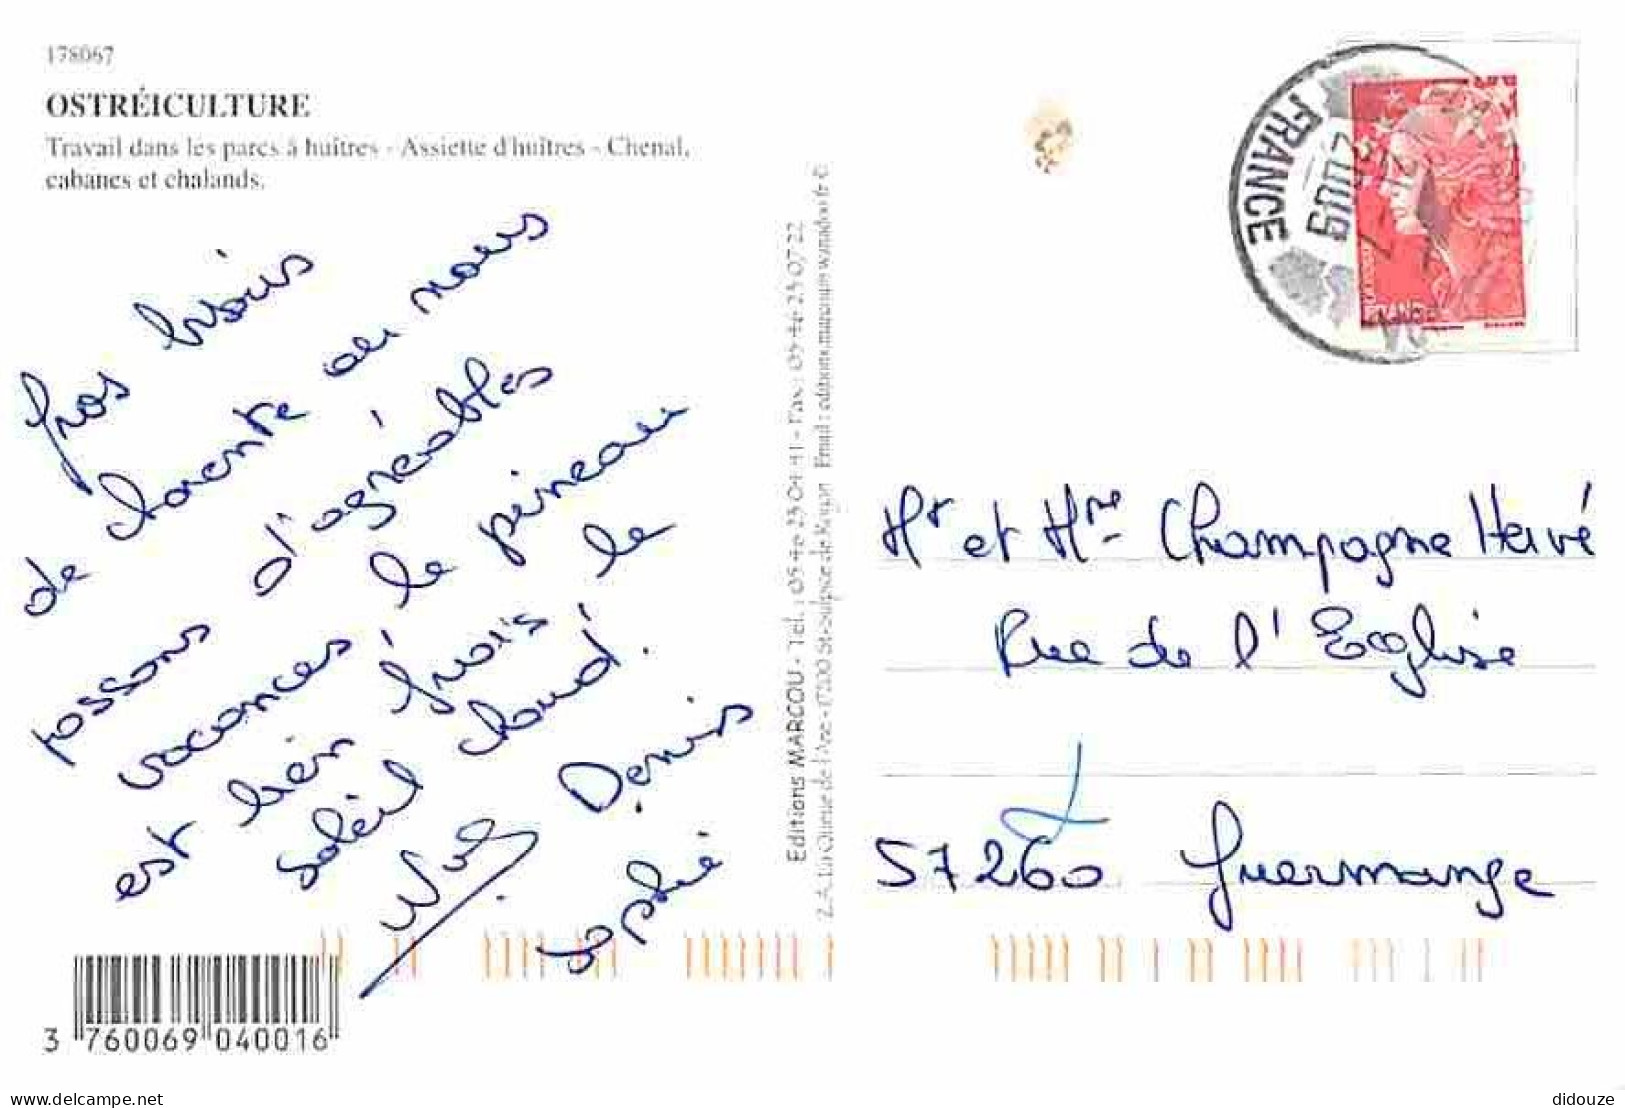 178067
OSTRÉICULTURE
Travail dans les parcs à huîtres - Assiette d'huîtres - Chenal,
cabanes et chalands.
gros bisous
de charente ou nous
passons d'agréables
vacances! le pineau
est bien frais le
soleil chaud!
Denis
Sophie
Editions MARCOU - Tél. : 05 46 23 04 41 - Fax : 05 46 23 07 22
Z.A. La Queue de l'Ane - 17200 St-Sulpice de Royan Email : editions.marcou@wanadoo.fr ©
FRANCE
FRANCE
Mr et Mme Champagne Hervé
Rue de l'Eglise
57260 Guermange
3 760069 040016
didouze